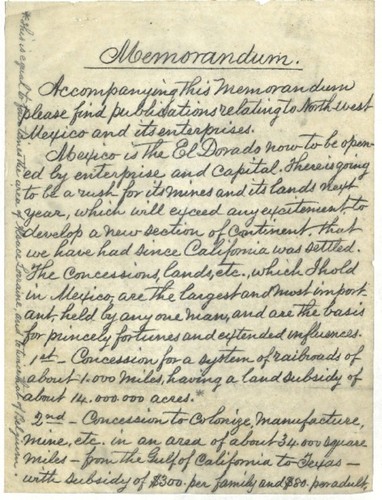 Memorandum.
Accompanying this Memorandum
please find publications relating to North west
Mexico and its enterprises.
Mexico is the El Dorado now to be open-
ed by enterprise and capital. There is going
to be a rush for its mines and its lands next
year, which will exceed any excitement, to
develop a new section of Continent, that
we have had since California was settled.
The Concessions, lands, etc., which I hold
in Mexico, are the largest and most import-
ant, held by any one man, and are the basis
for princely fortunes and extended influences.
1st - Concession for a system of railroads of
about 1.000 miles, having a land subsidy of
about 14.000.000 acres.
2nd - Concession to Colonize, Manufacture,
mine, etc. in an area of about 34.000 square
miles - from the Gulf of California to Texas -
with subsidy of $300. per family and $50. per adult,
* this is equal to four times the area of Alsace Lorraine, and to that of Belgium.